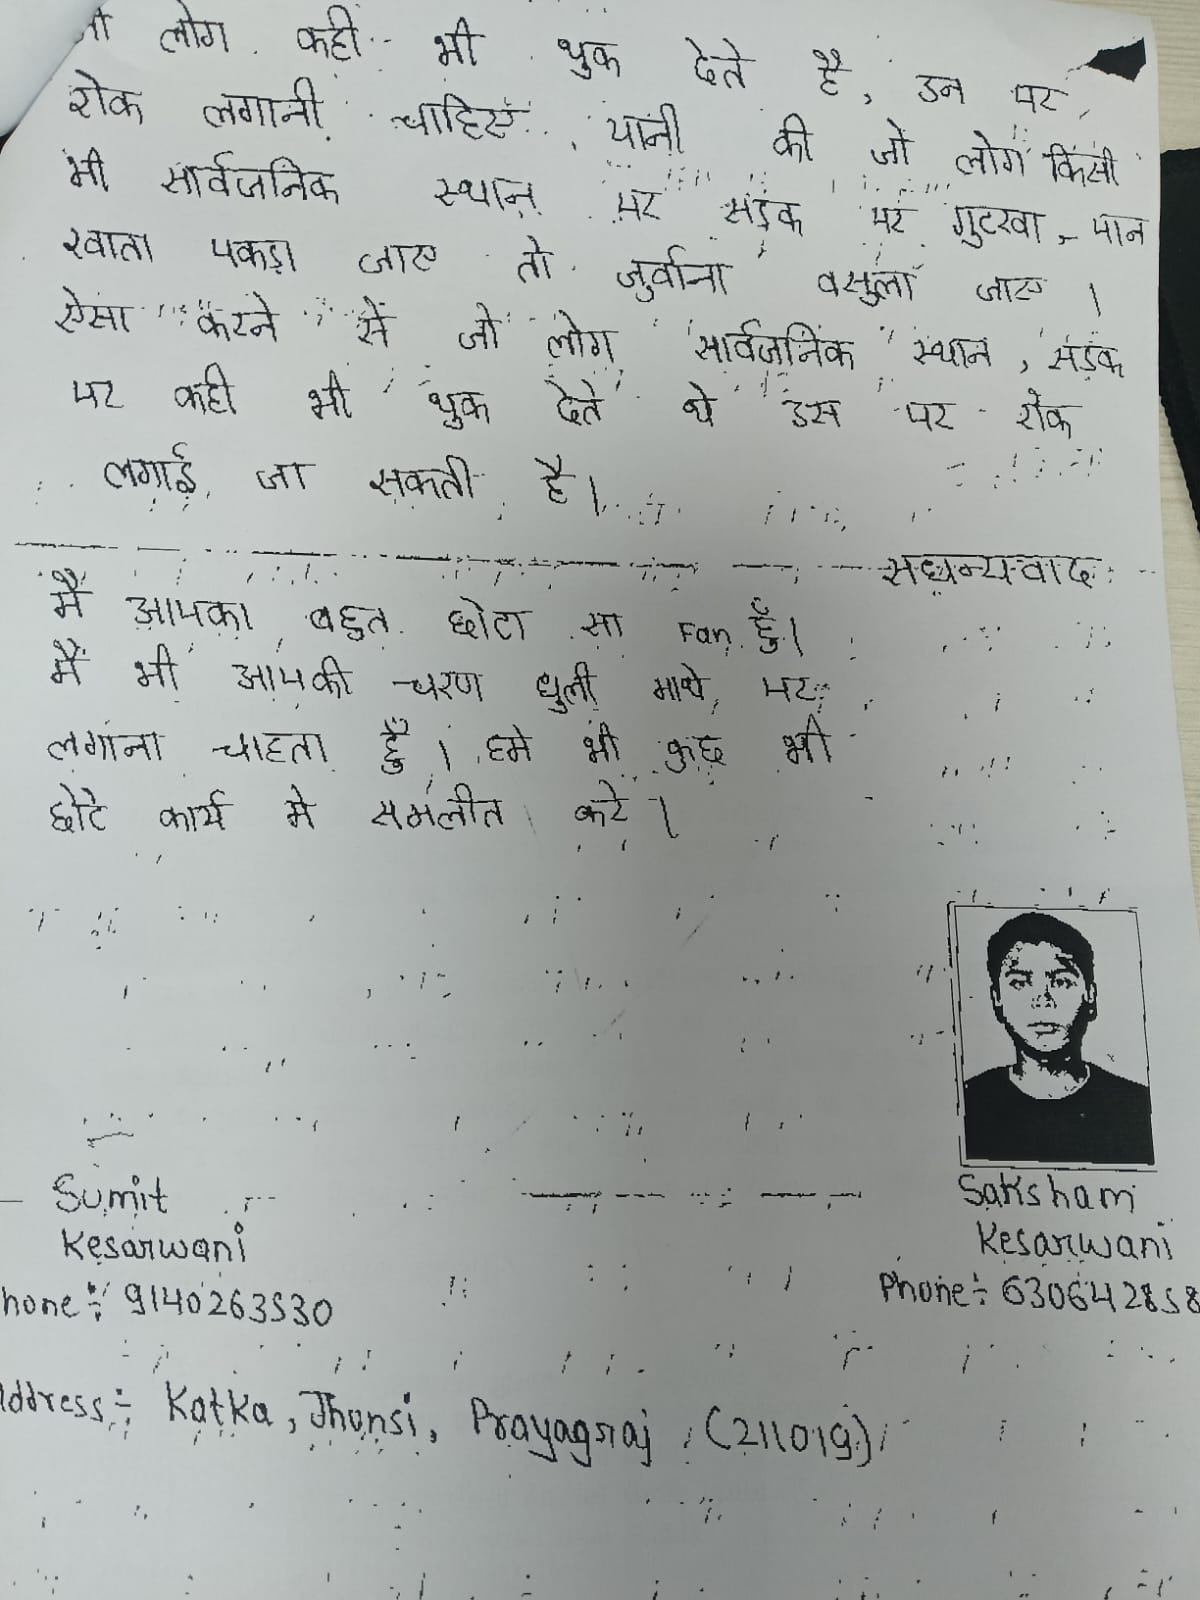 लोग कही भी थुक देते है, उन पर
रोक लगानी चाहिए यानी की जो लोग किसी
भी सार्वजनिक स्थान पर सड़क पर गुटखा - पान
खाता पकड़ा जाए तो जुर्वाना वसुला जाए ।
ऐसा करने सें जो लोग सार्वजनिक स्थान, सड़क
पर कही भी थुक देते थे उस पर रोक
लगाई जा सकती है।
सधन्यवाद
मैं आपका बहुत छोटा सा Fan हुँ।
मैं भी आपकी चरण धुली माथे पर
लगाना चाहता हुँ । हमे भी कुछ भी
छोटे कार्य मे समलीत करे ।
Sumit
Kesarwani
hone:- 9140263530
Saksham
Kesarwani
Phone:- 630642858
ddress:- Katka, Jhunsi, Prayagraj (211019)